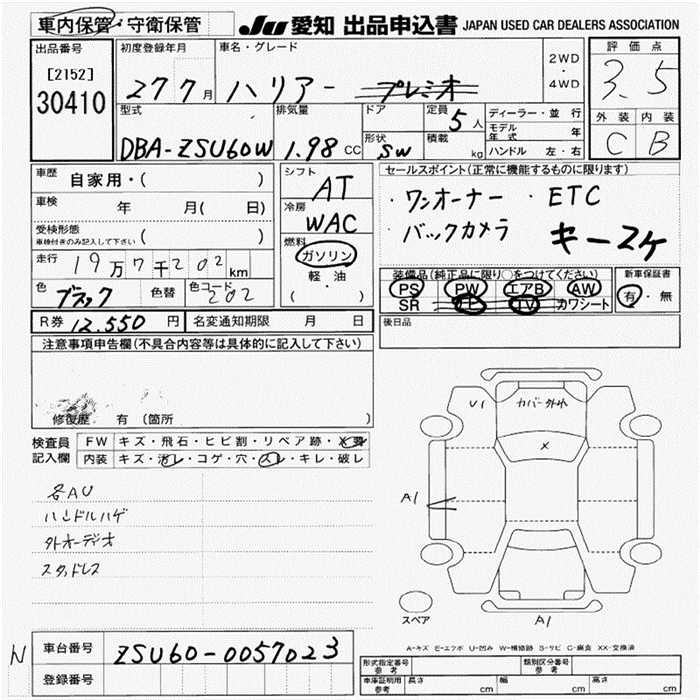 車内保管・守衛保管
JU 愛知 出品申込書 JAPAN USED CAR DEALERS ASSOCIATION
出品番号
[2152]
30410
初度登録年月
27 7月
車名・グレード
ハリアー プレミオ
2WD
・
4WD
評価点
3.5
外装 内装
C B
型式
DBA-ZSU60W
排気量
1.98 CC
ドア
形状
SW
定員 5人
積載 kg
ディーラー・並行
モデル年式 年
ハンドル 左・右
車歴 自家用・( )
車検 年 月( 日)
受検形態
車検付きのみ記入して下さい ( )
走行 19万7千202km
色 ブラック 色替 色コード 202
シフト
AT
冷房
WAC
燃料
ガソリン
軽・油
( )
セールスポイント(正常に機能するものに限ります)
・ワンオーナー ・ETC
・バックカメラ キー2ヶ
装備品(純正品に限り○をつけてください)
PS PW エアB AW
SR TV カワシート
新車保証書
有・無
R券 12,550円 名変通知期限 月 日
後日品
注意事項申告欄(不具合内容等は具体的に記入して下さい)
修復歴 有 (箇所 )
検査員
記入欄
FW キズ・飛石・ヒビ割・リペア跡・×要
内装 キズ・汚レ・コゲ・穴・スレ・キレ・破レ
各AU
ハンドルハゲ
外オーディオ
スタッドレス
U1
カバー外れ
×
A1
スペア
A1
A-キズ E-エクボ U-凹み W-補修跡 S-サビ C-腐食 XX-交換済
N 車台番号 ZSU60-0057023
登録番号
形式指定番号
参考
類別区分番号
参考
車庫証明用
参考
長さ cm 幅 cm 高さ cm